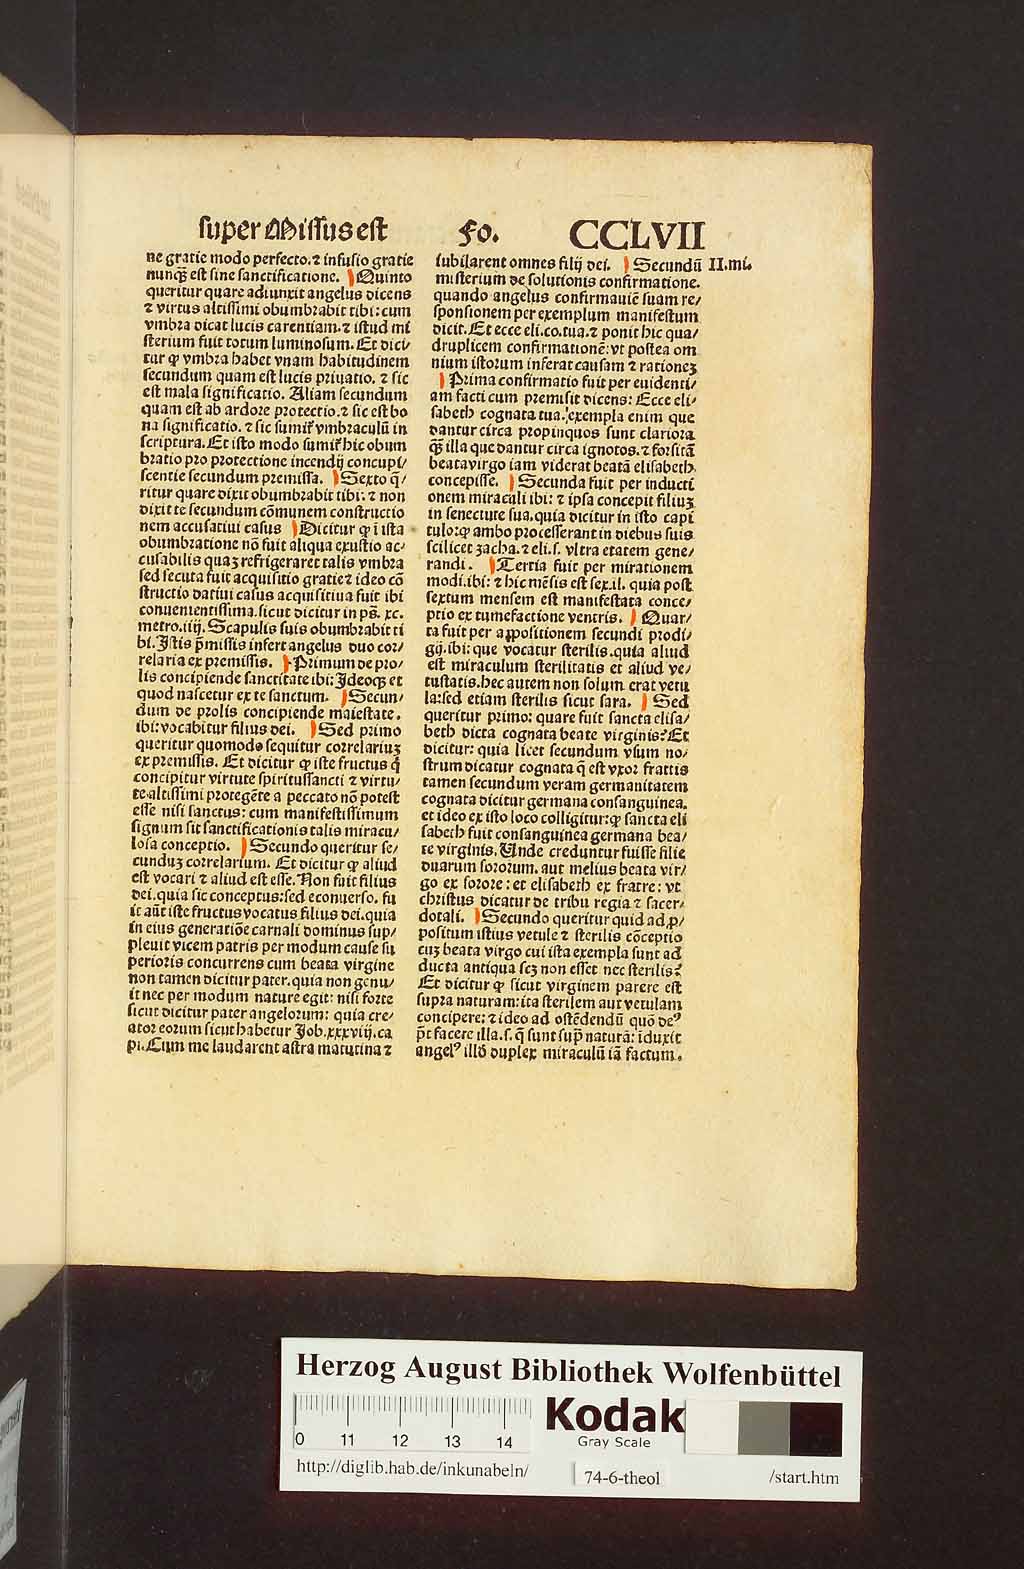 super Missus est Fo. CCLVII
ne gratie modo perfecto. ⁊ infusio gratie
nunq̃ est sine sanctificatione. Quinto
queritur quare adiunxit angelus dicens
⁊ virtus altissimi obumbrabit tibi: cum
vmbra dicat lucis carentiam. ⁊ istud mi
sterium fuit totum luminosum. Et dici/
tur ꝙ vmbra habet vnam habitudinem
secundum quam est lucis priuatio. ⁊ sic
est mala significatio. Aliam secundum
quam est ab ardore protectio. ⁊ sic est bo
na significatio. ⁊ sic sumit᷑ vmbraculū in
scriptura. Et isto modo sumit᷑ hic obum
bratio pro protectione incendij concupi/
scentie secundum premissa. Sexto q̄/
ritur quare dixit obumbrabit tibi: ⁊ non
dixit te secundum cōmunem constructio
nem accusatiui casus Dicitur ꝙ ī ista
obumbratione nō fuit aliqua exustio ac/
cusabilis quaꝫ refrigeraret talis vmbra
sed secuta fuit acquisitio gratie ⁊ ideo cō
structio datiui casus acquisitiua fuit ibi
conuenientissima. sicut dicitur in ps̄. xc.
metro. iiij. Scapulis suis obumbrabit ti
bi. Istis p̄missis infert angelus duo cor/
relaria ex premissis. Primum de pro/
lis concipiende sanctitate ibi: Ideoqꝫ et
quod nascetur ex te sanctum. Secun/
dum de prolis concipiende maiestate.
ibi: vocabitur filius dei. Sed primo
queritur quomodo sequitur correlariuꝫ
ex premissis. Et dicitur ꝙ iste fructus q̄
concipitur virtute spiritussancti ⁊ virtu/
te altissimi protegēte a peccato nō potest
esse nisi sanctus: cum manifestissimum
signum sit sanctificationis talis miracu/
losa conceptio. Secundo queritur se/
cunduꝫ correlarium. Et dicitur ꝙ aliud
est vocari ⁊ aliud est esse. Non fuit filius
dei. quia sic conceptus: sed econuerso. fu
it aūt iste fructus vocatus filius dei. quia
in eius generatiōe carnali dominus sup/
pleuit vicem patris per modum cause su
perioris concurrens cum beata virgine
non tamen dicitur pater. quia non genu/
it nec per modum nature egit: nisi forte
sicut dicitur pater angelorum: quia cre/
ator eorum sicut habetur Job. xxxviij. ca
pi. Cum me laudarent astra matutina ⁊
iubilarent omnes filij dei. Secundū II. mi.
misterium de solutionis confirmatione.
quando angelus confirmauiē suam re/
sponsionem per exemplum manifestum
dicit. Et ecce eli. co. tua. ⁊ ponit hic qua/
druplicem confirmationē: vt postea om
nium istorum inferat causam ⁊ rationeꝫ
Prima confirmatio fuit per euidenti/
am facti cum premisit dicens: Ecce eli/
sabeth cognata tua. exempla enim que
dantur circa propinquos sunt clariora
q̃ illa que dantur circa ignotos. ⁊ forsitā
beata virgo iam viderat beatā elisabeth
concepisse. Secunda fuit per inducti
onem miraculi ibi: ⁊ ipsa concepit filiuꝫ
in senectute sua. quia dicitur in isto capi
tulo: ꝙ ambo processerant in diebus suis
scilicet zacha. ⁊ eli. s. vltra etatem gene/
randi. Tertia fuit per mirationem
modi. ibi: ⁊ hic mēsis est sex. il. quia post
sextum mensem est manifestata conce/
ptio ex tumefactione ventris. Quar/
ta fuit per appositionem secundi prodi/
gij. ibi: que vocatur sterilis. quia aliud
est miraculum sterilitatis et aliud ve/
tustatis. hec autem non solum erat vetu
la: sed etiam sterilis sicut sara. Sed
queritur primo: quare fuit sancta elisa/
beth dicta cognata beate virginis? Et
dicitur: quia licet secundum vsum no/
strum dicatur cognata q̄ est vxor fratris
tamen secundum veram germanitatem
cognata dicitur germana consanguinea.
et ideo ex isto loco colligitur: ꝙ sancta eli
sabeth fuit consanguinea germana bea/
te virginis. Unde creduntur fuisse filie
duarum sororum. aut melius beata vir/
go ex sorore: et elisabeth ex fratre: vt
christus dicatur de tribu regia ⁊ sacer/
dotali. Secundo queritur quid ad ꝓ/
positum istius vetule ⁊ sterilis cōceptio
cuꝫ beata virgo cui ista exempla sunt ad
ducta antiqua scꝫ non esset nec sterilis?
Et dicitur ꝙ sicut virginem parere est
supra naturam: ita sterilem aut vetulam
concipere: ⁊ ideo ad ostēdendū quō deꝰ
p̄t facere illa. s. q̄ sunt sup̄ naturā: īduxit
angelꝰ illō duplex miraculū iā factum.
Herzog August Bibliothek Wolfenbüttel
0 11 12 13 14
Kodak
Gray Scale
http://diglib.hab.de/inkunabeln/ 74-6-theol /start.htm